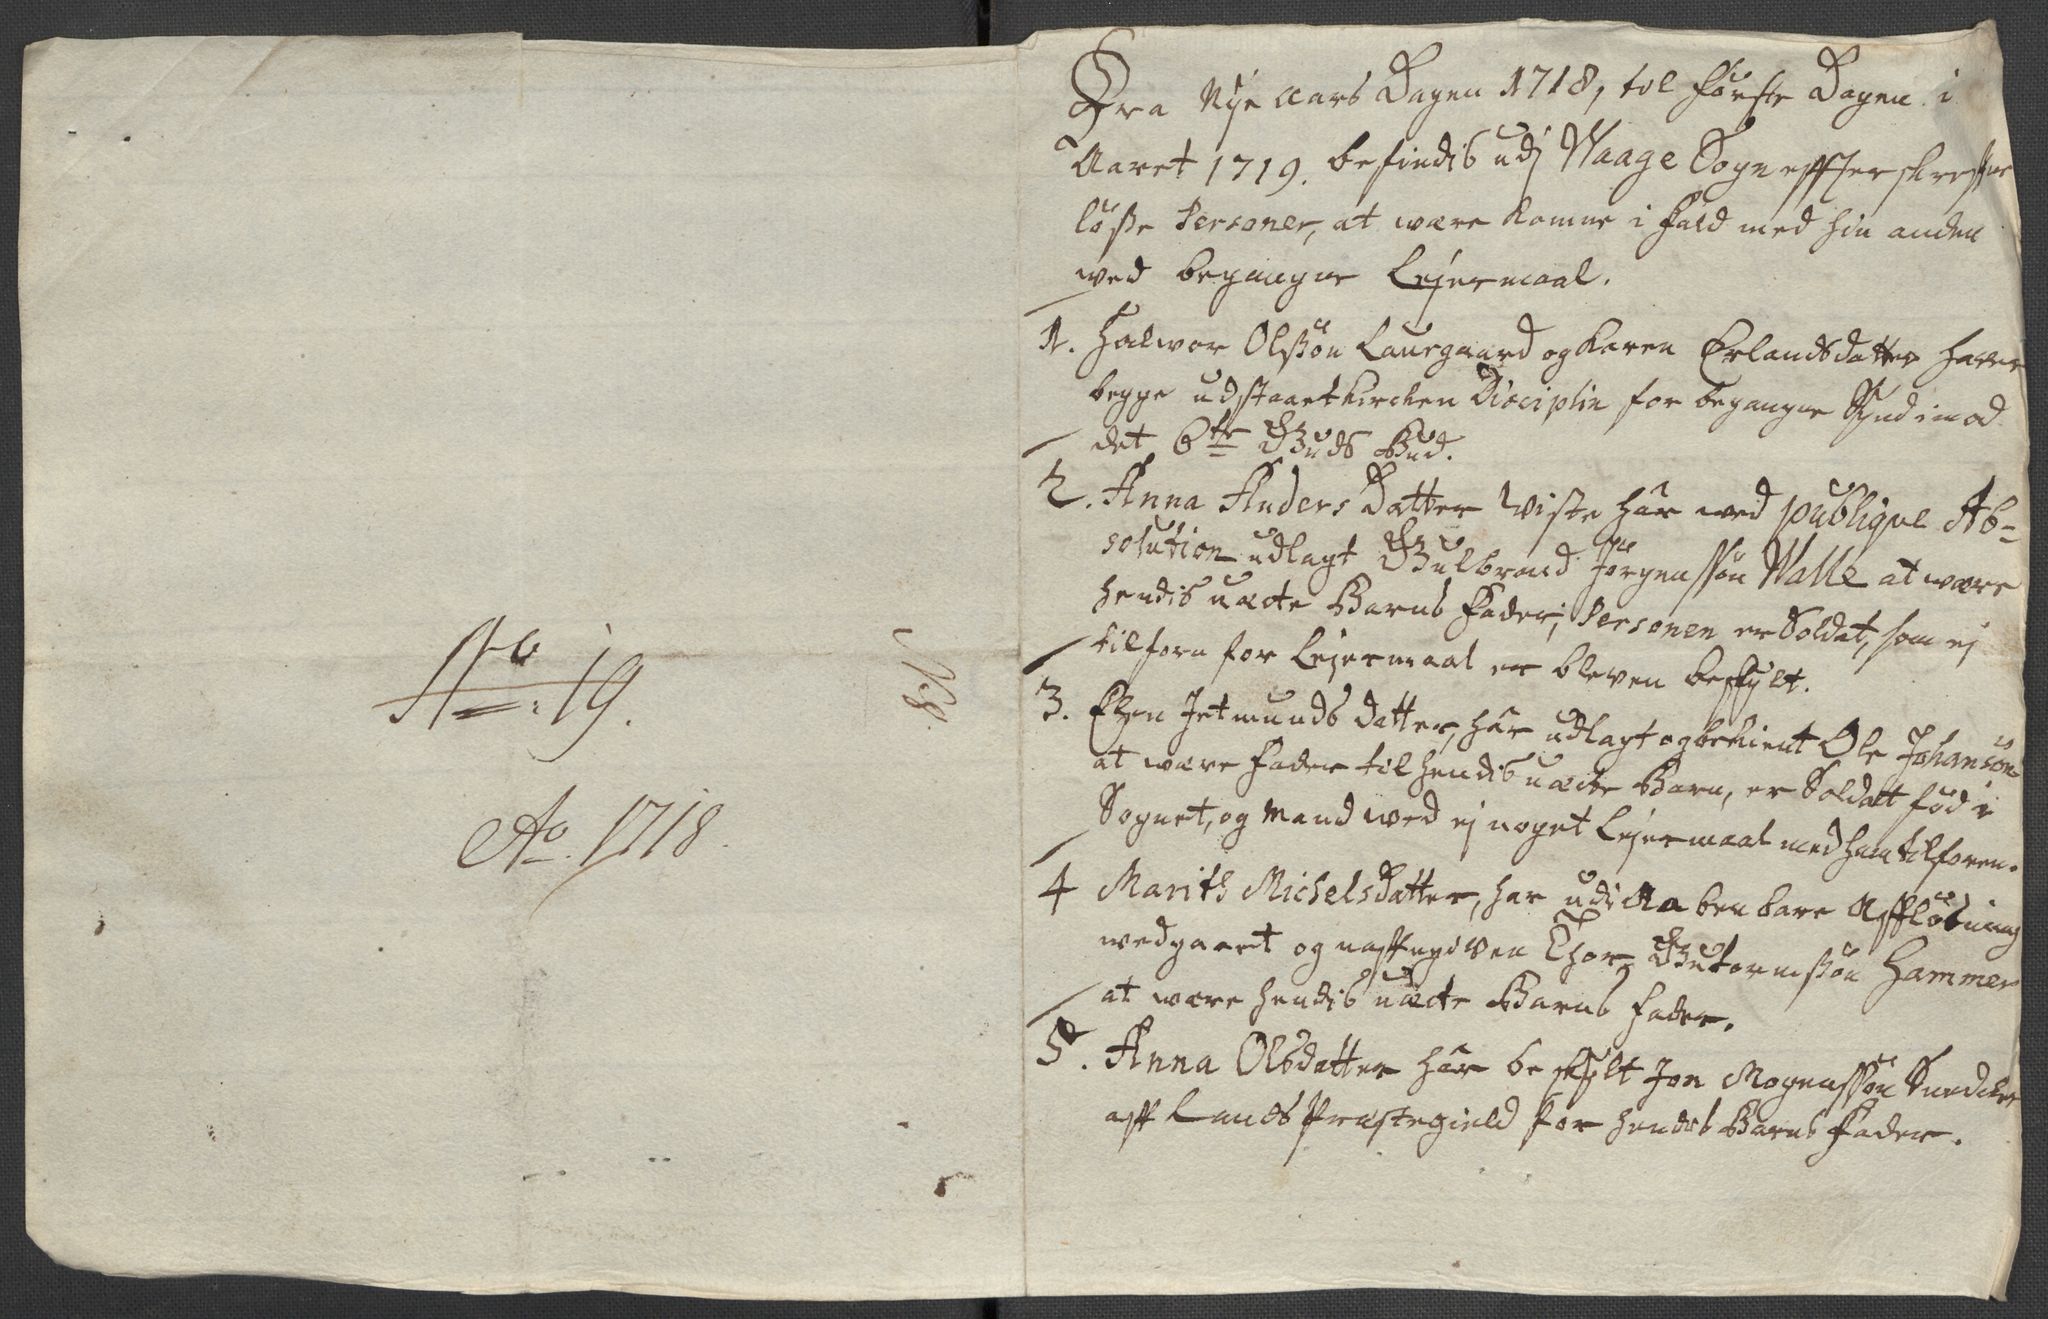 No: 19.
Ao. 1718.
Fra Nye Aars Dagen 1718, til første Dagen i
Aaret 1719. befindis udj Waage Sogn effterskrefne
løsse Personer, at være komne i Fald med hin anden
ved begangne Lejermaal.
1. Halvor Olssøn Laurgaard og Karen Erlandsdatter haver
begge udstaaet Kirckens Disciplin for begangne Synd imod
det 6te Guds Bud.
2. Anna Anders Datter Wiste hâr ved publique Ab-
solution udlagt Gulbrand Jörgenssøn Walle at være
hendis uæcte Barns Fader; Personen er Soldat, som ej
tilforn for Lejermaal er bleven beskylt.
3. Elen Jetmunds Datter, hâr udlagt og bekient Ole Johansøn
at være Fader til hendis uæcte Barn, er Soldat fød i
Sognet, og Mand wed ej noget Lejermaal med ham tilforen.
4 Marith Michelsdatter, har udi Aabenbare Afflösning
vedgaaet og naffngiven Thor Gutormssøn Hammer
at være hendis uæcte Barns Fader.
5. Anna Olsdatter hâr beskylt Jon Mogenssøn Snedcker
aff Lands Præstegield for hendis Barns Fader.